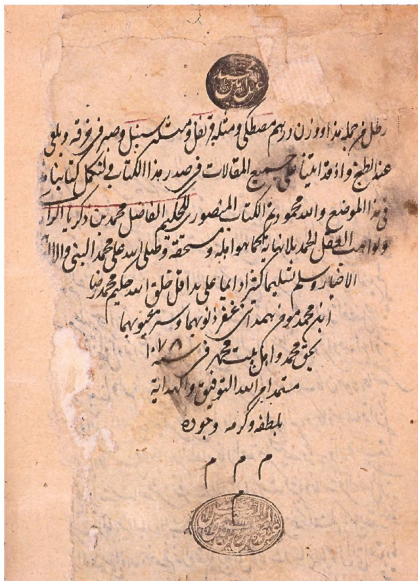 رطل من جملة هذا ووزن درهم مصطكى ومثله قرنفل ومثله سنبل وصر في خرقة ويلقى
عند الطبخ واذ قد اتينا على جميع المقالات في صدر هذا الكتاب فلنكمل كتابنا هذا
في هذا الموضع والله محمود تم الكتاب المنصوري للحكيم الفاضل محمد بن زكريا الرازي
ولواهب العقل الحمد بلا نهاية كما هو اهله ومستحقه وصلى الله على محمد النبي وآله
الاخيار وسلم تسليما كثيرا دايما على يد اقل خلق الله حكيم محمد رضا
ابن محمد مومن همدانى غفر ذنوبهما وستر عيوبهما
بحق محمد واهل بيت محمد في سنه ١٠٧٨
مستمدا من الله التوفيق والهداية
بلطفه وكرمه وجوده
م م م